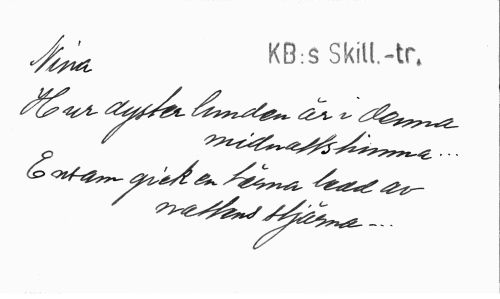 Nina
KB:s Skill.-tr.
Hur dyster lunden är i denna
midnattstimma...
Ensam gick en tärna ledd av
nattens stjärna...